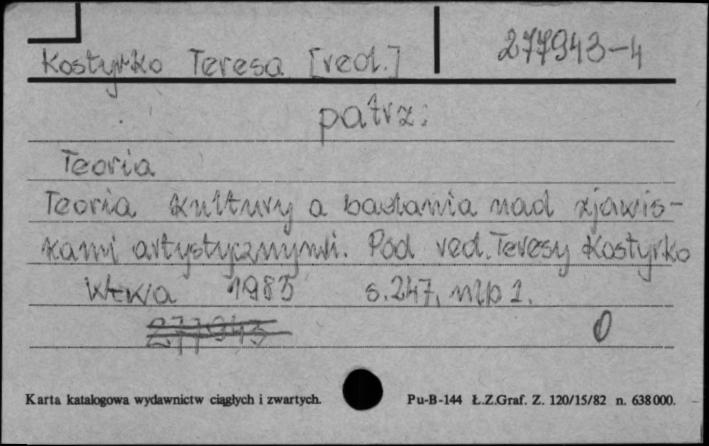 Kostyrko Teresa [red.] 277943-4
patrz:
Teoria
Teoria kultury a badania nad zjawis-
kami artystycznymi. Pod red. Teresy Kostyrko
W-wa 1983 s. 247, nlb 1.
277943
0
Karta katalogowa wydawnictw ciągłych i zwartych. Pu-B-144 Ł.Z.Graf. Z. 120/15/82 n. 638 000.